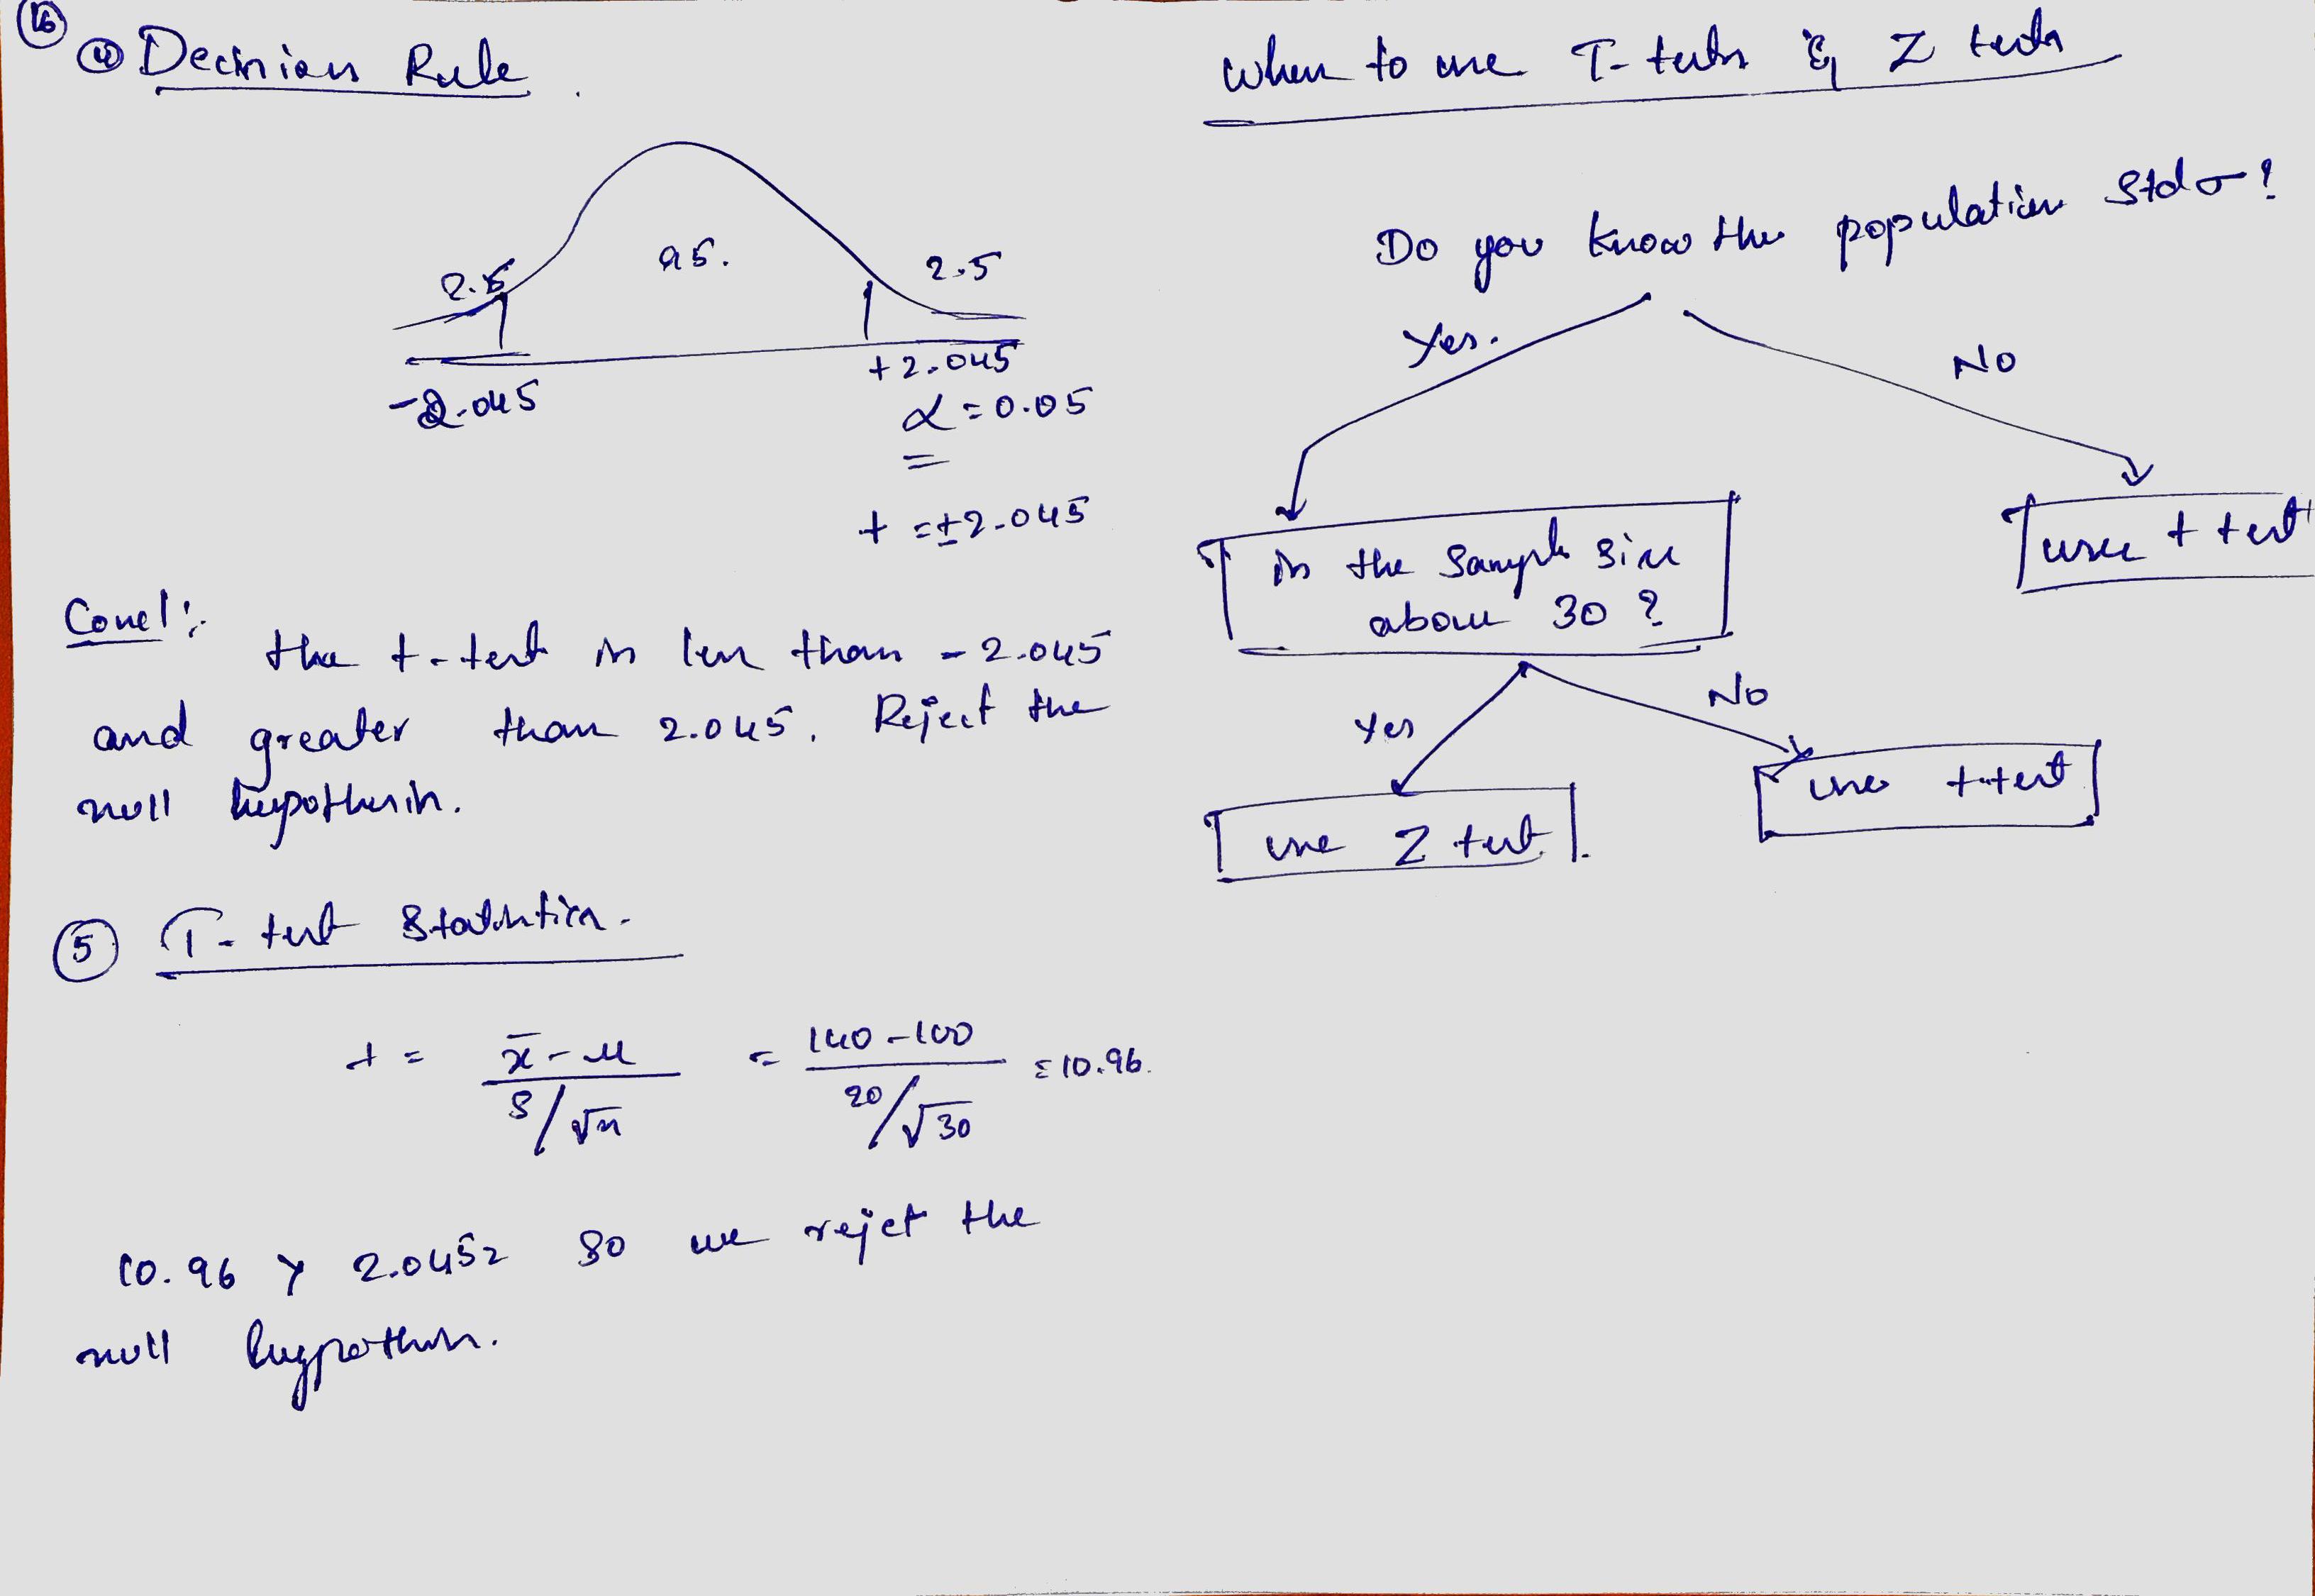 16
④ Decision Rule.
2.5 95. 2.5
-2.045 +2.045
α = 0.05
t = ±2.045
Concl:
the t-test is less than - 2.045
and greater than 2.045. Reject the
null hypothesis.
⑤ T-test Statistics.
t = x̄ - μ / s/√n = 140 - 100 / 20/√30 = 10.96.
10.96 > 2.0452 so we rejet the
null hypothesis.
when to use T-tests & Z tests
Do you know the population Std σ?
Yes. No
is the Sample size
above 30 ?
use t test
Yes No
use Z test.
use t-test